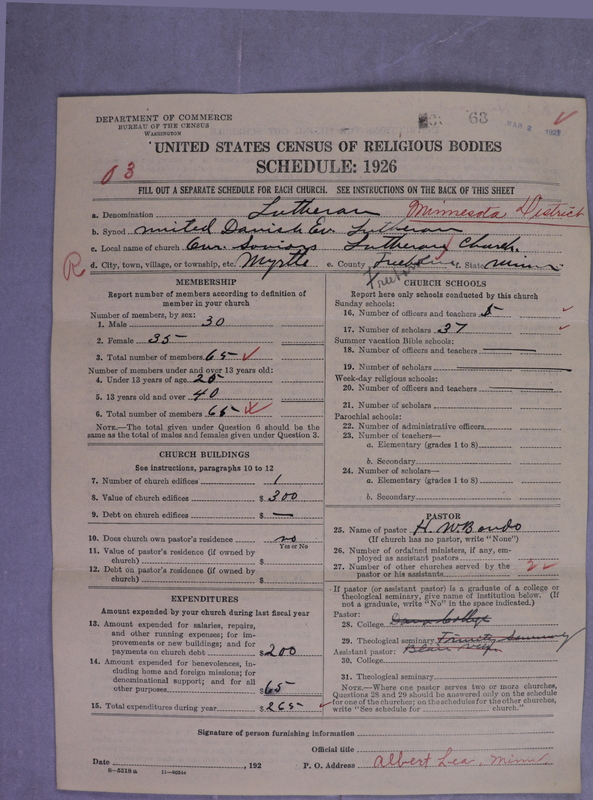 DEPARTMENT OF COMMERCE
BUREAU OF THE CENSUS
WASHINGTON
63
MAR 2
UNITED STATES CENSUS OF RELIGIOUS BODIES
SCHEDULE: 1926
03
FILL OUT A SEPARATE SCHEDULE FOR EACH CHURCH. SEE INSTRUCTIONS ON THE BACK OF THIS SHEET
a. Denomination Lutheran Minnesota District
b. Synod united Danish Ev. Lutheran
c. Local name of church Our Saviors Lutheran Church
R
d. City, town, village, or township, etc. Myrtle e. County Freeborn f. State Minn
Freeborn
MEMBERSHIP
Report number of members according to definition of
member in your church
Number of members, by sex:
1. Male 30
2. Female 35
3. Total number of members 65
Number of members under and over 13 years old:
4. Under 13 years of age 25
5. 13 years old and over 40
6. Total number of members 65
NOTE.—The total given under Question 6 should be the
same as the total of males and females given under Question 3.
CHURCH BUILDINGS
See instructions, paragraphs 10 to 12
7. Number of church edifices 1
8. Value of church edifices $300
9. Debt on church edifices $—
10. Does church own pastor's residence no
Yes or No
11. Value of pastor's residence (if owned by
church) $
12. Debt on pastor's residence (if owned by
church) $
EXPENDITURES
Amount expended by your church during last fiscal year
13. Amount expended for salaries, repairs,
and other running expenses; for im-
provements or new buildings; and for
payments on church debt $200
14. Amount expended for benevolences, in-
cluding home and foreign missions; for
denominational support; and for all
other purposes $65
15. Total expenditures during year $265
CHURCH SCHOOLS
Report here only schools conducted by this church
Sunday schools:
16. Number of officers and teachers 5
17. Number of scholars 37
Summer vacation Bible schools:
18. Number of officers and teachers
19. Number of scholars
Week-day religious schools:
20. Number of officers and teachers
21. Number of scholars
Parochial schools:
22. Number of administrative officers
23. Number of teachers—
a. Elementary (grades 1 to 8)
b. Secondary
24. Number of scholars—
a. Elementary (grades 1 to 8)
b. Secondary
PASTOR
25. Name of pastor H. W. Bondo
(If church has no pastor, write "None")
26. Number of ordained ministers, if any, em-
ployed as assistant pastors
27. Number of other churches served by the
pastor or his assistants 2
If pastor (or assistant pastor) is a graduate of a college or
theological seminary, give name of institution below. (If
not a graduate, write "No" in the space indicated.)
Pastor:
28. College Dana College
29. Theological seminary Trinity Seminary
Assistant pastor: Blair Nebr.
30. College
31. Theological seminary
NOTE.—Where one pastor serves two or more churches,
Questions 28 and 29 should be answered only on the schedule
for one of the churches; on the schedules for the other churches,
write "See schedule for church."
Signature of person furnishing information
Official title
Date , 192 P. O. Address Albert Lea, Minn.
8—5318a 11—8034c